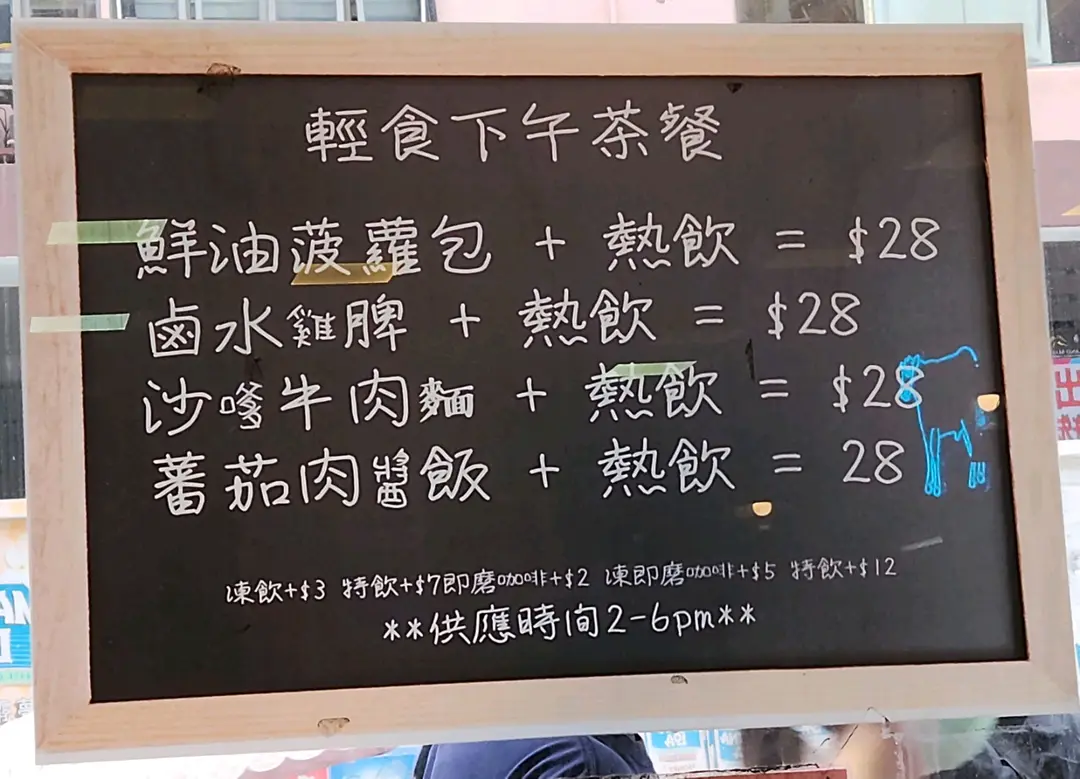 輕食下午茶餐
鮮油菠蘿包 + 熱飲 = $28
鹵水雞脾 + 熱飲 = $28
沙嗲牛肉麵 + 熱飲 = $28
蕃茄肉醬飯 + 熱飲 = 28
凍飲+$3 特飲+$7即磨咖啡+$2 凍即磨咖啡+$5 特飲+$12
**供應時間2-6pm**